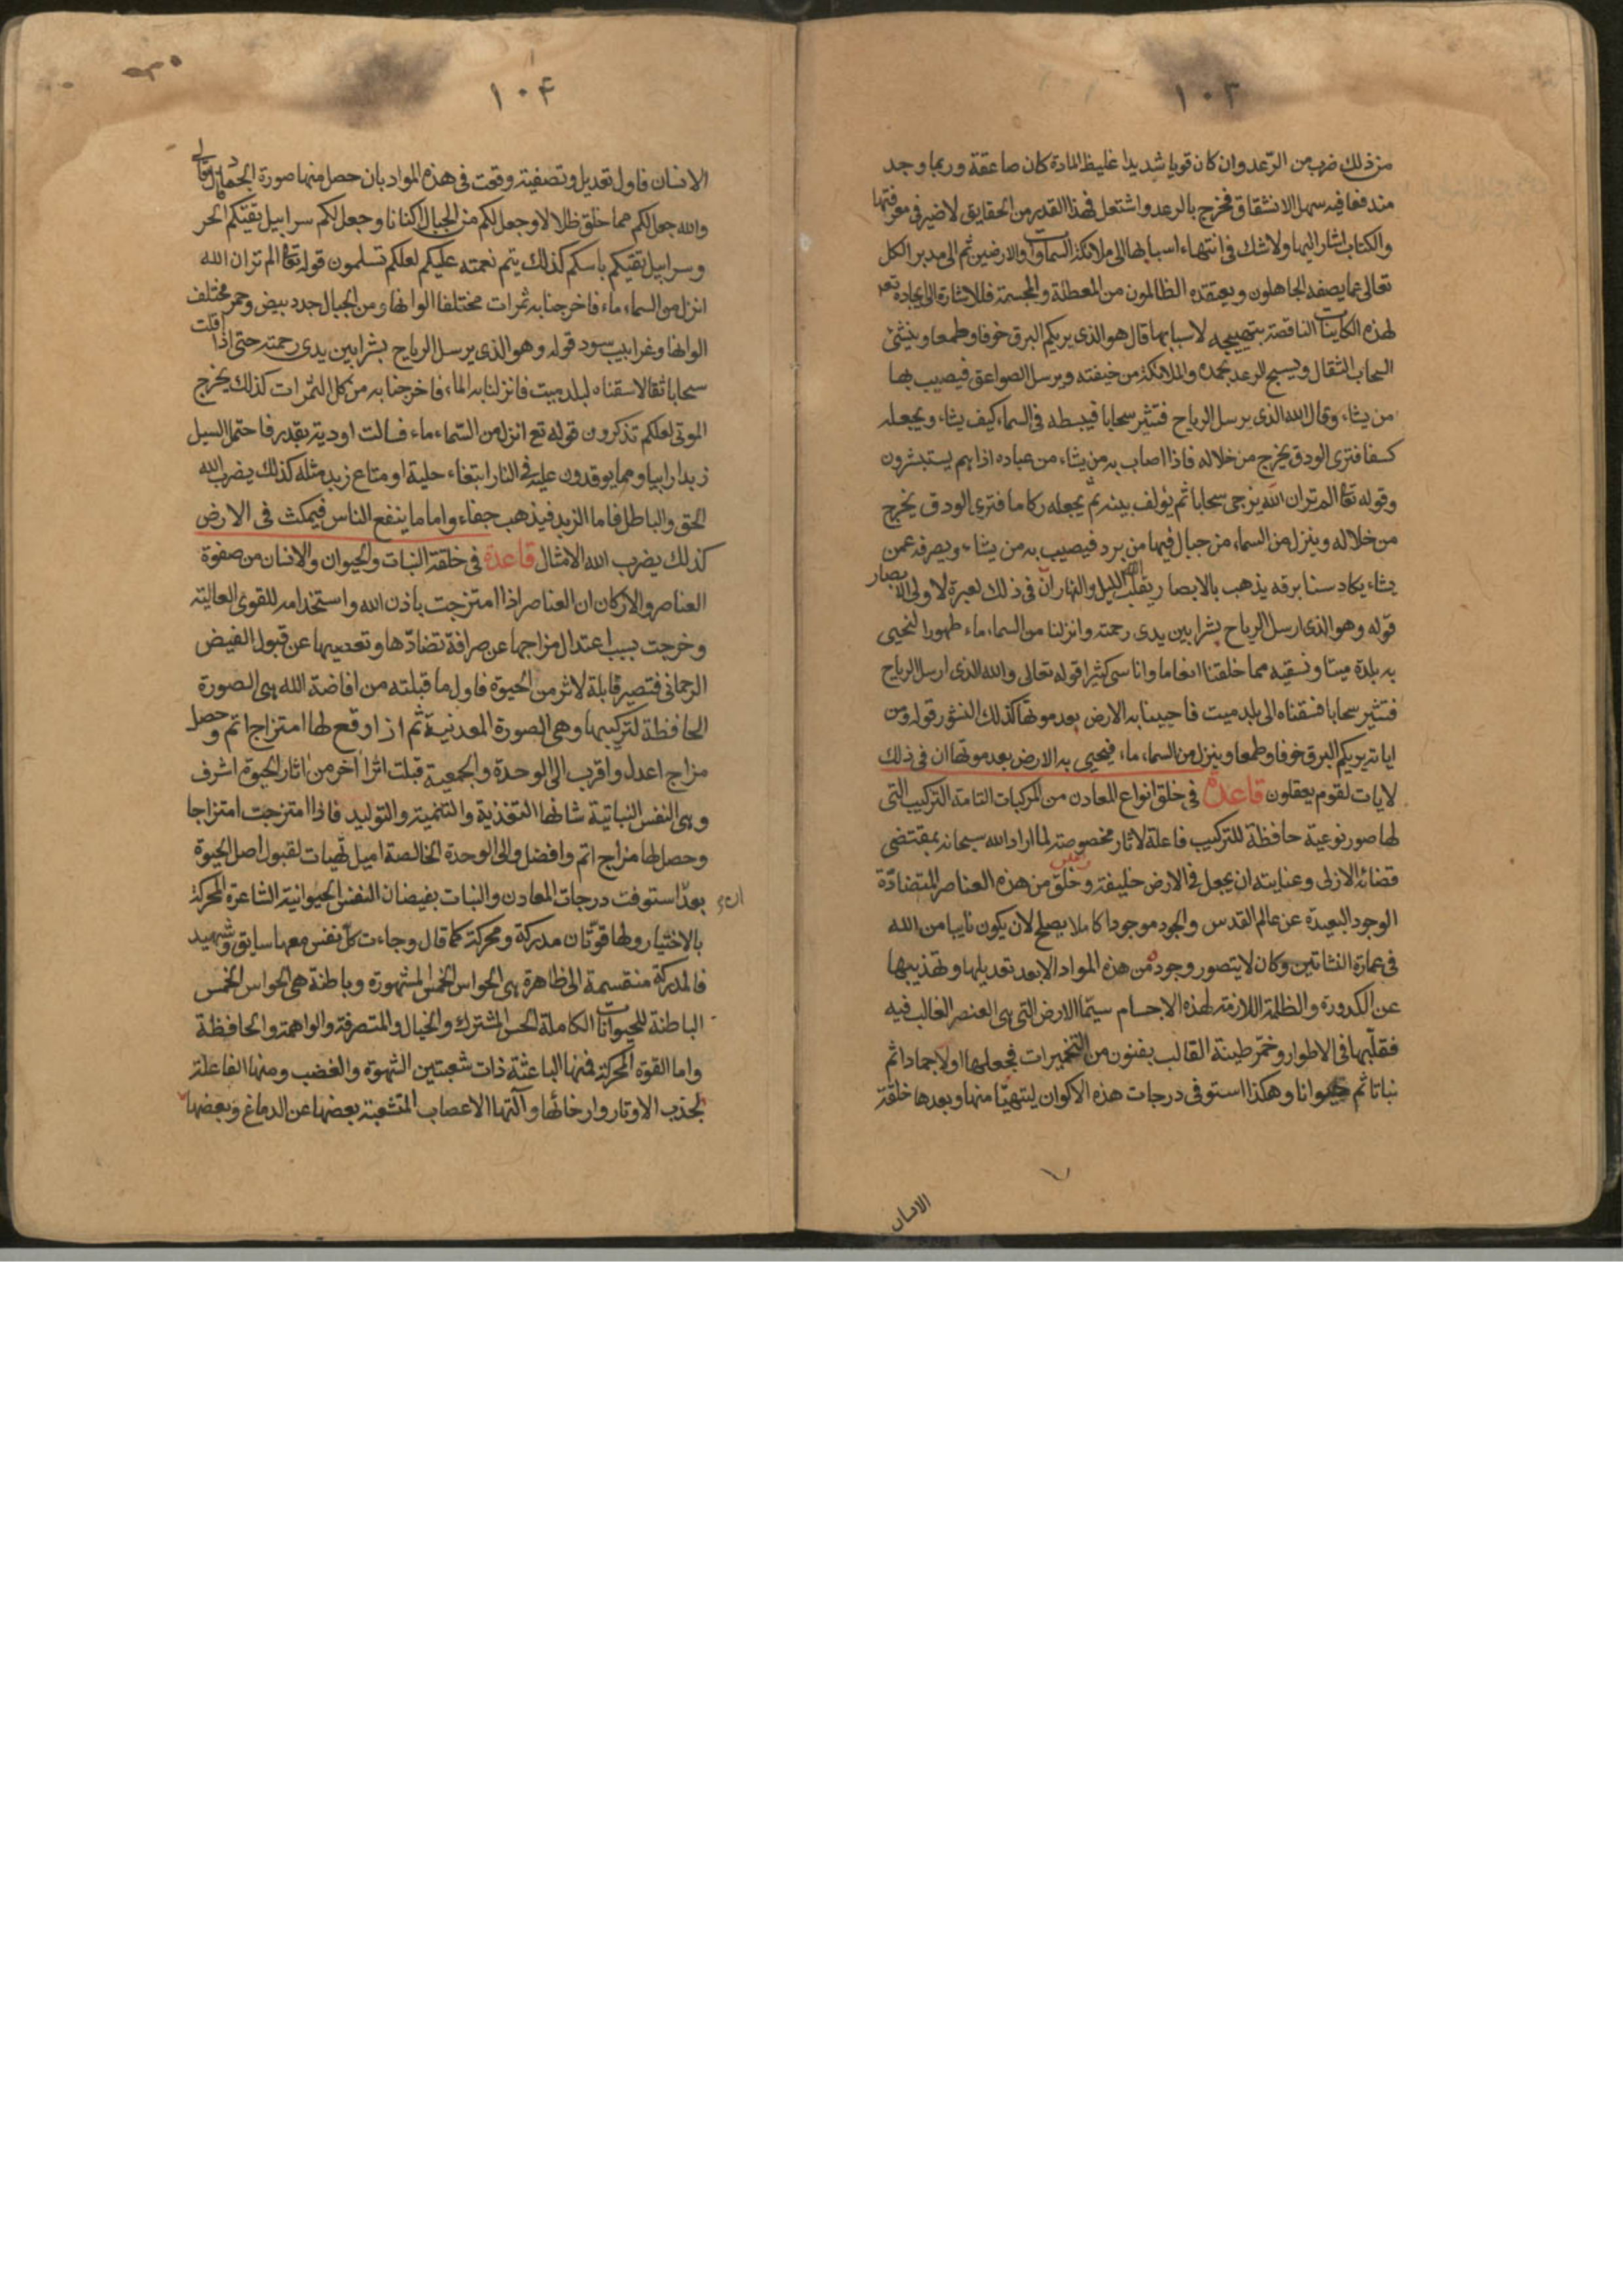 ١٠٣
من ذلك ضرب من الرّعد وان كان قويا شديدا غليظ المادة كان صاعقة وربما وجد
مندفعا فيه سهل الانشقاق فخرج بالرعد واشتعل فهذا القدر من الحقايق لا ضير فى معرفتها
والكتاب اشار اليها ولا شك فى انتهاء اسبابها الى ملائكة السماوات والارضين ثم الى مدبر الكل
تعالى عما يصفه الجاهلون ويعتقده الظالمون من المعطلة والمجسمة فللاشارة الى ايجاده تعـ
لهذه الكاينات الناقصة بتهييجه لاسبابها قال هو الذى يريكم البرق خوفا وطمعا وينشئ
السحاب الثقال ويسبح الرعد بحمده والملائكة من خيفته ويرسل الصواعق فيصيب بها
من يشاء وقال الله الذى يرسل الرياح فتثير سحابا فيبسطه فى السماء كيف يشاء ويجعله
كسفا فترى الودق يخرج من خلاله فاذا اصاب به من يشاء من عباده اذا هم يستبشرون
وقوله تعا الم تر ان الله يزجى سحابا ثم يؤلف بينه ثم يجعله ركاما فترى الودق يخرج
من خلاله وينزل من السماء من جبال فيها من برد فيصيب به من يشاء ويصرفه عمن
يشاء يكاد سنا برقه يذهب بالابصار يقلب الله الليل والنهار ان فى ذلك لعبرة لاولى الابصار
قوله وهو الذى ارسل الرياح بشرا بين يدى رحمته وانزلنا من السماء ماء طهورا لنحيى
به بلدة ميتا ونسقيه مما خلقنا انعاما واناسى كثيرا قوله تعالى والله الذى ارسل الرياح
فتثير سحابا فسقناه الى بلد ميت فاحيينا به الارض بعد موتها كذلك النشور قوله ومن
اياته يريكم البرق خوفا وطمعا وينزل من السماء ماء فيحيى به الارض بعد موتها ان فى ذلك
لايات لقوم يعقلون قاعدة فى خلق انواع المعادن من المركبات التامة التركيب التى
لها صور نوعية حافظة للتركيب فاعلة لاثار مخصوصة لما اراد الله سبحانه بمقتضى
قضائه الازلى وعنايته ان يجعل فى الارض خليفة وخلق من هذه العناصر المتضادّة
الوجود البعيدة عن عالم القدس والجود موجودا كاملا يصلح لان يكون نايبا من الله
فى عمارة النشاتين وكان لا يتصور وجوده من هذه المواد الا بعد تعديلها وتهذيبها
عن الكدورة والظلمة اللازمة لهذه الاجسام سيّما الارض التى هى العنصر الغالب فيه
فقلّبها فى الاطوار وخمّر طينة القالب بفنون من التخميرات فجعلها اولا جمادا ثم
نباتا ثم حيوانا وهكذا استوفى درجات هذه الاكوان ليتهيّا منها وبعدها خلقة
الانسان
١٠٤
الانسان فاول تعديل وتصفية وقعت فى هذه المواد بان حصل منها صورة الجماد قال تعالى
والله جعل لكم مما خلق ظلالا وجعل لكم من الجبال اكنانا وجعل لكم سرابيل تقيكم الحر
وسرابيل تقيكم باسكم كذلك يتم نعمته عليكم لعلكم تسلمون قوله تعا الم تر ان الله
انزل من السماء ماء فاخرجنا به ثمرات مختلفا الوانها ومن الجبال جدد بيض وحمر مختلف
الوانها وغرابيب سود قوله وهو الذى يرسل الرياح بشرا بين يدى رحمته حتى اذا اقلت
سحابا ثقالا سقناه لبلد ميت فانزلنا به الماء فاخرجنا به من كل الثمرات كذلك يخرج
الموتى لعلكم تذكرون قوله تع انزل من السّماء ماء فسالت اودية بقدر فاحتمل السيل
زبدا رابيا ومما يوقدون عليه فى النار ابتغاء حلية او متاع زبد مثله كذلك يضرب الله
الحق والباطل فاما الزبد فيذهب جفاء واما ما ينفع الناس فيمكث فى الارض
كذلك يضرب الله الامثال قاعدة فى خلقة النبات والحيوان والانسان من صفوة
العناصر والاركان ان العناصر اذا امتزجت باذن الله واستخدامه للقوى العالية
وخرجت بسبب اعتدال مزاجها عن صرافة تضادّها وتعصيها عن قبول الفيض
الرحمانى فتصير قابلة لاثر من الحيوة فاول ما قبلته من افاضة الله هى الصورة
الحافظة لتركيبها وهى الصورة المعدنية ثم اذا وقع لها امتزاج اتم وحصل
مزاج اعدل واقرب الى الوحدة والجمعية قبلت اثرا آخر من اثار الحيوة اشرف
وهى النفس النباتية شانها التغذية والتنمية والتوليد فاذا امتزجت امتزاجا
وحصل لها مزاج اتم وافضل والى الوحدة الخالصة اميل تهيات لقبول اصل الحيوة
بعد استوفت درجات المعادن والنبات بفيضان النفس الحيوانية الشاعرة المحركة
بالاختيار ولها قوّتان مدركة ومحركة كما قال وجاءت كلّ نفس معها سايق وشهيد
فالمدركة منقسمة الى ظاهرة هى الحواس الخمس المشهورة وباطنة هى الحواس الخمس
الباطنة للحيوانات الكاملة الحس المشترك والخيال والمتصرفة والواهمة والحافظة
واما القوة المحركة فمنها الباعثة ذات شعبتين الشهوة والغضب ومنها الفاعلة
لجذب الاوتار وارخائها وآلتها الاعصاب المتشعبة بعضها عن الدماغ وبعضها